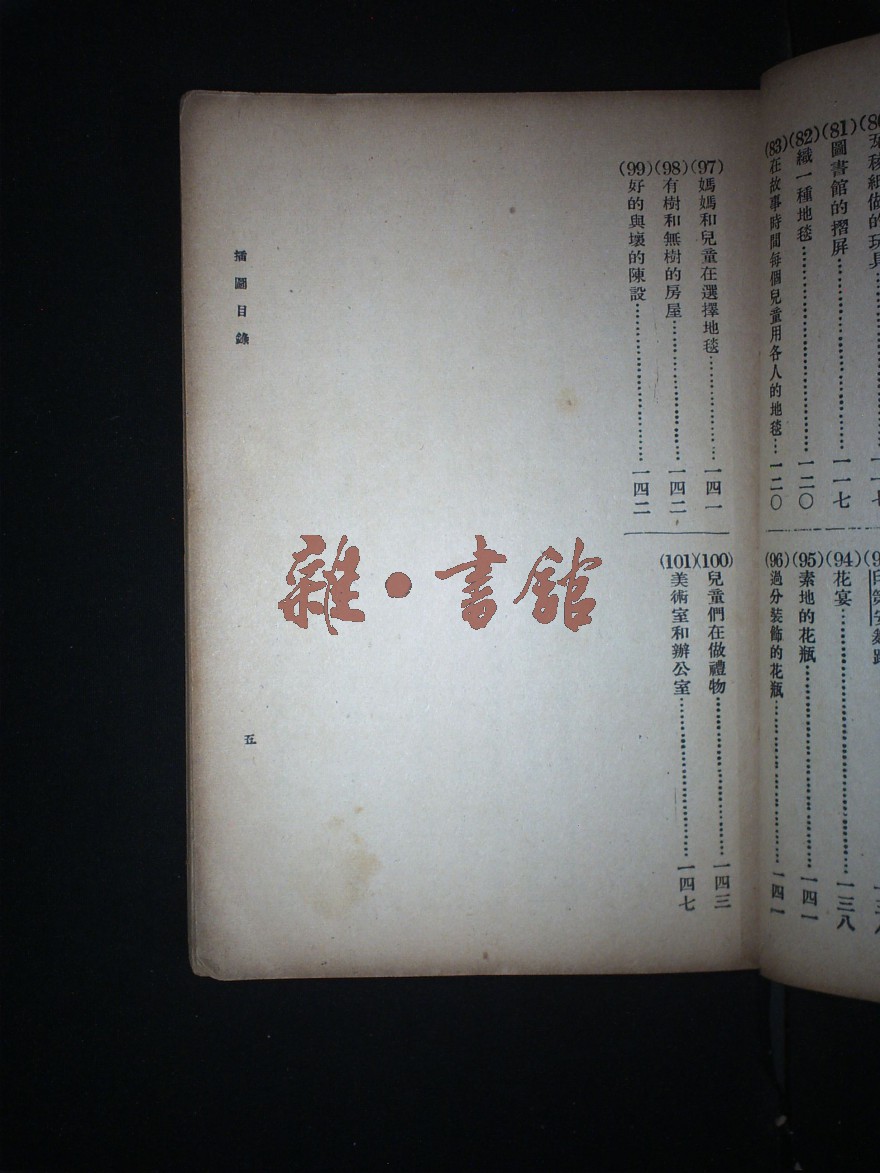 (81)圖書館的摺屏…一一七
(82)織一種地毯…一二〇
(83)在故事時間每個兒童用各人的地毯…一二〇
(94)花宴…一三八
(95)素地的花瓶…一四一
(96)過分裝飾的花瓶…一四一
(97)媽媽和兒童在選擇地毯…一四一
(98)有樹和無樹的房屋…一四二
(99)好的與壞的陳設…一四二
(100)兒童們在做禮物…一四三
(101)美術室和辦公室…一四七
插圖目錄
五
雜•書館